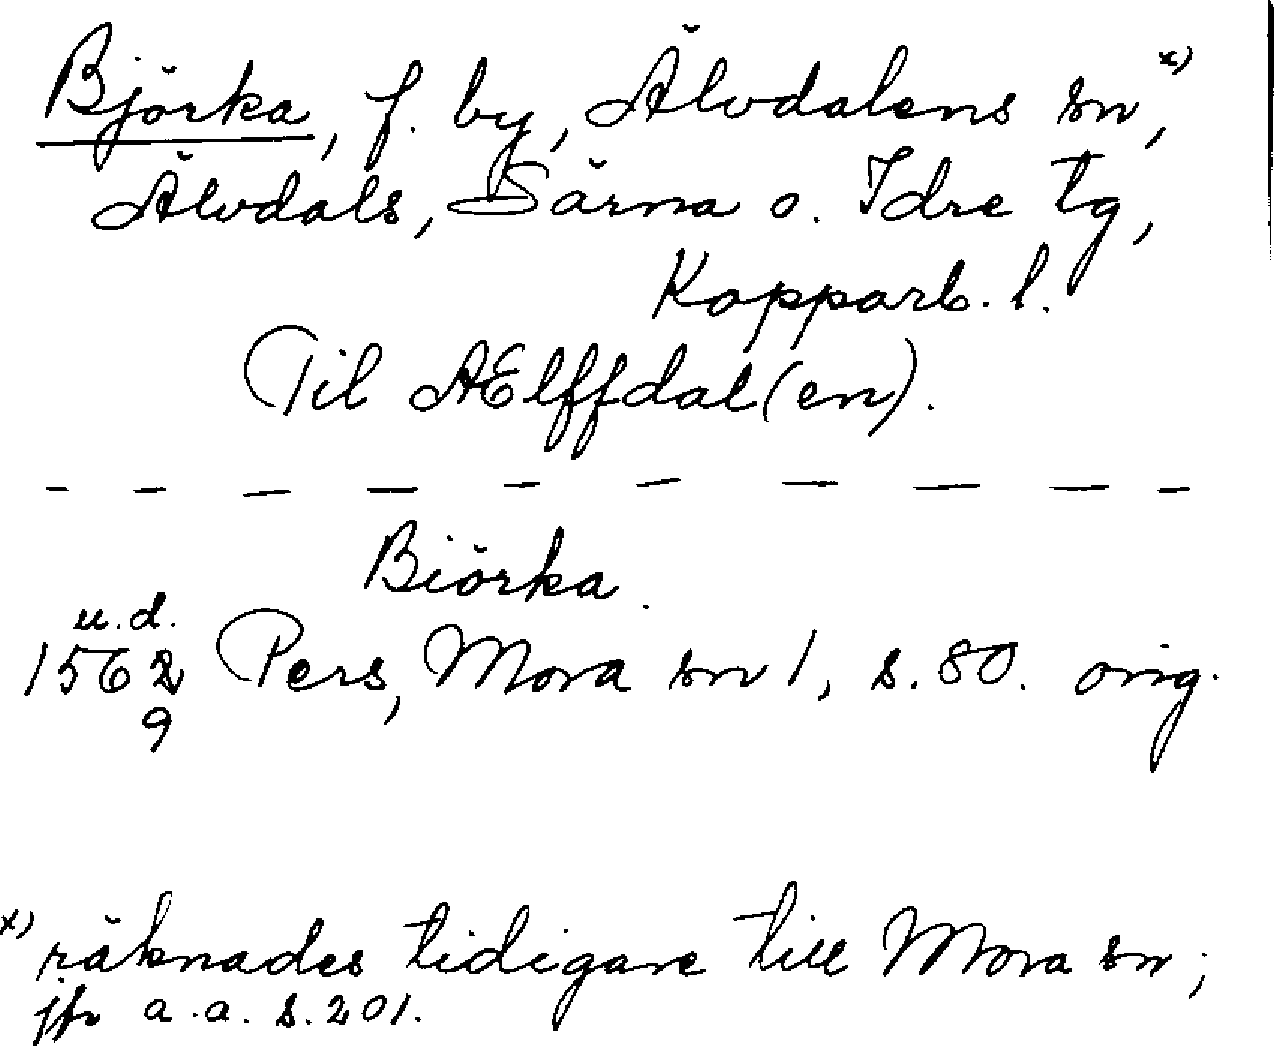 Björka, f. by, Älvdalens sn,x)
Älvdals, Särna o. Idre tg,
Kopparb. l.
Til AElffdal(en).
- - - - - - - - - -
Biörka.
u.d.
1562 Pers, Mora sn 1, s. 80. orig.
9
x) räknades tidigare till Mora sn;
jfr a.a. s. 201.